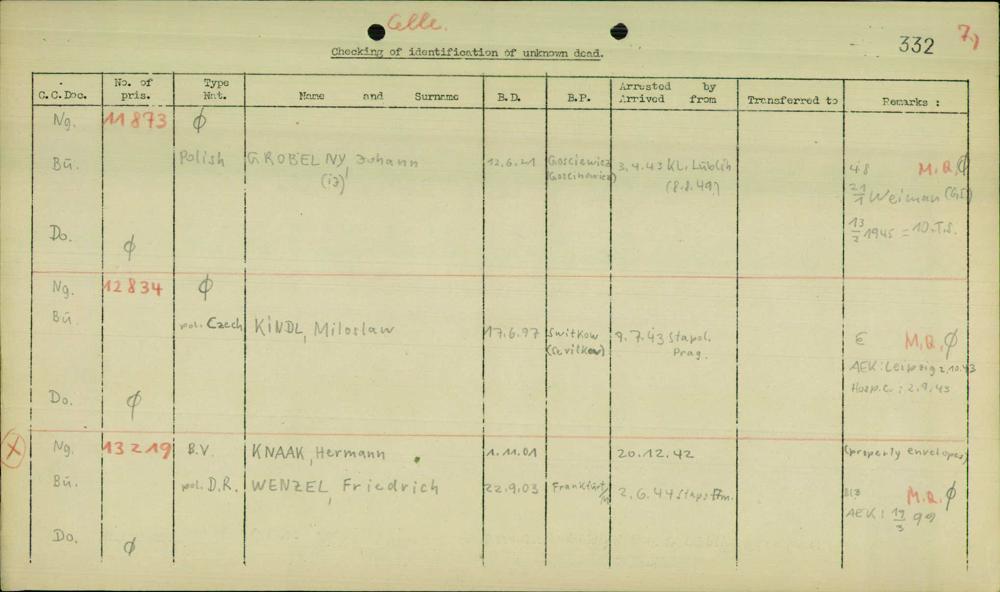 Celle.
332 7,)
Checking of identification of unknown dead.
C.C.Doc. No. of pris. Type Nat. Name and Surname B.D. B.P. Arrested by Arrived from Transferred to Remarks :
Ng. 11873 ϕ
Bü. Polish GROBELNY, Johann 12.6.21 Gosciewicz 3.4.43 KL. Lublin M.Q. ϕ
(iz) (Goscinowicz) (8.8.49) 21/1 Weimar
Do. ϕ 13/2 1945 = 10.T.S.
Ng. 12834 ϕ
Bü. pol. Czech KINDL, Miloslaw 17.6.97 Switkow 9.7.43 Stapol. E M.Q. ϕ
(Sevitkow) Prag. AEK: Leipzig 2.10.43
Hosp.c.: 2.9.43
Do. ϕ
X Ng. 13219 B.V. KNAAK, Hermann 1.11.01 20.12.42 (property envelopes)
Bü. pol. D.R. WENZEL, Friedrich 22.9.03 Frankfurt/M 2.6.44 Stapo Ffm. M.Q. ϕ
AEK: 17/3 99
Do. ϕ